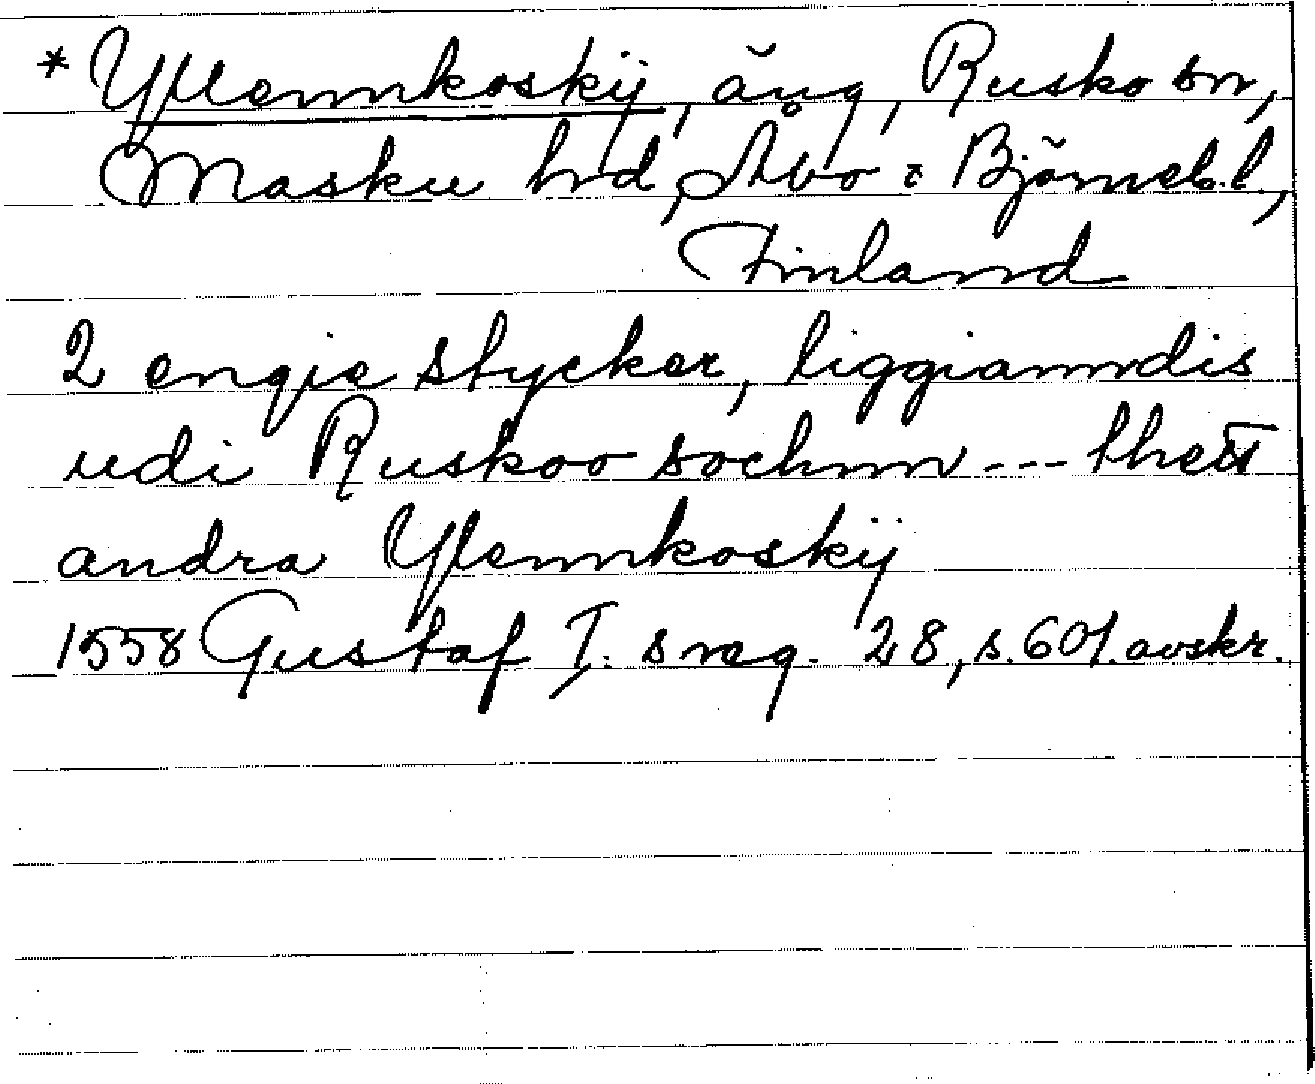 * Ylennkoskij, äng, Rusko sn,
Masku hd, Åbo o Björneb.l.,
Finland
2 engie stycker, liggianndis
udi Ruskoo sochnn --- thett
andra Ylennkoskij
1558 Gustaf I:s reg. 28, s. 601. avskr.